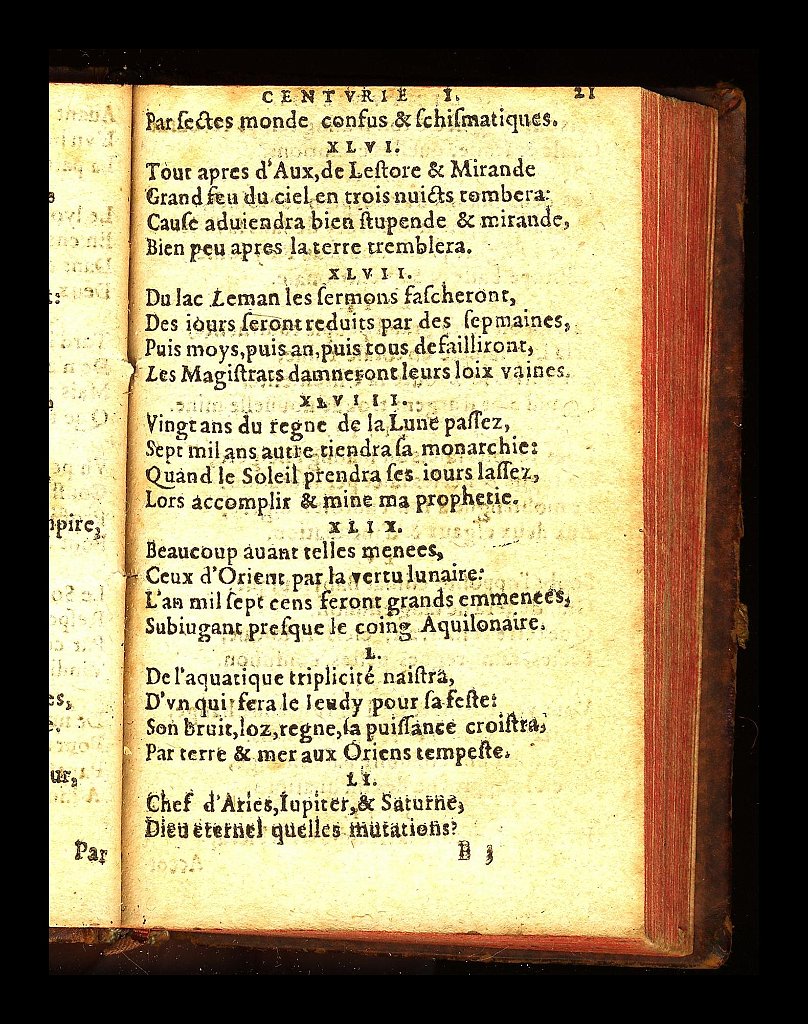 pire,
es,
ur,
Par
CENTVRIE I. 21
Par ſectes monde confus & ſchiſmatiques.
XLVI.
Tout apres d'Aux, de Leſtore & Mirande
Grand feu du ciel en trois nuicts tombera:
Cauſe aduiendra bien ſtupende & mirande,
Bien peu apres la terre tremblera.
XLVII.
Du lac Leman les ſermons faſcheront,
Des iours ſeront reduits par des ſepmaines,
Puis moys, puis an, puis tous defailliront,
Les Magiſtrats damneront leurs loix vaines.
XLVIII.
Vingt ans du regne de la Lune paſſez,
Sept mil ans autre tiendra ſa monarchie:
Quand le Soleil prendra ſes iours laſſez,
Lors accomplir & mine ma prophetie.
XLIX.
Beaucoup auant telles menees,
Ceux d'Orient par la vertu lunaire:
L'an mil ſept cens feront grands emmenees,
Subiugant preſque le coing Aquilonaire.
L.
De l'aquatique triplicité naiſtra,
D'vn qui fera le Ieudy pour ſa feſte:
Son bruit, loz, regne, ſa puiſſance croiſtra,
Par terre & mer aux Oriens tempeſte.
LI.
Chef d'Aries, Iupiter, & Saturne,
Dieu eternel quelles mutations?
B 3